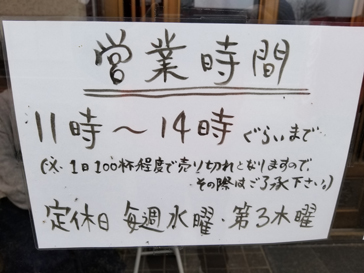 営業時間
11時～14時 ぐらいまで
(※・1日100杯程度で売り切れとなりますので、
その際はご了承下さい。)
定休日 毎週水曜・第3木曜